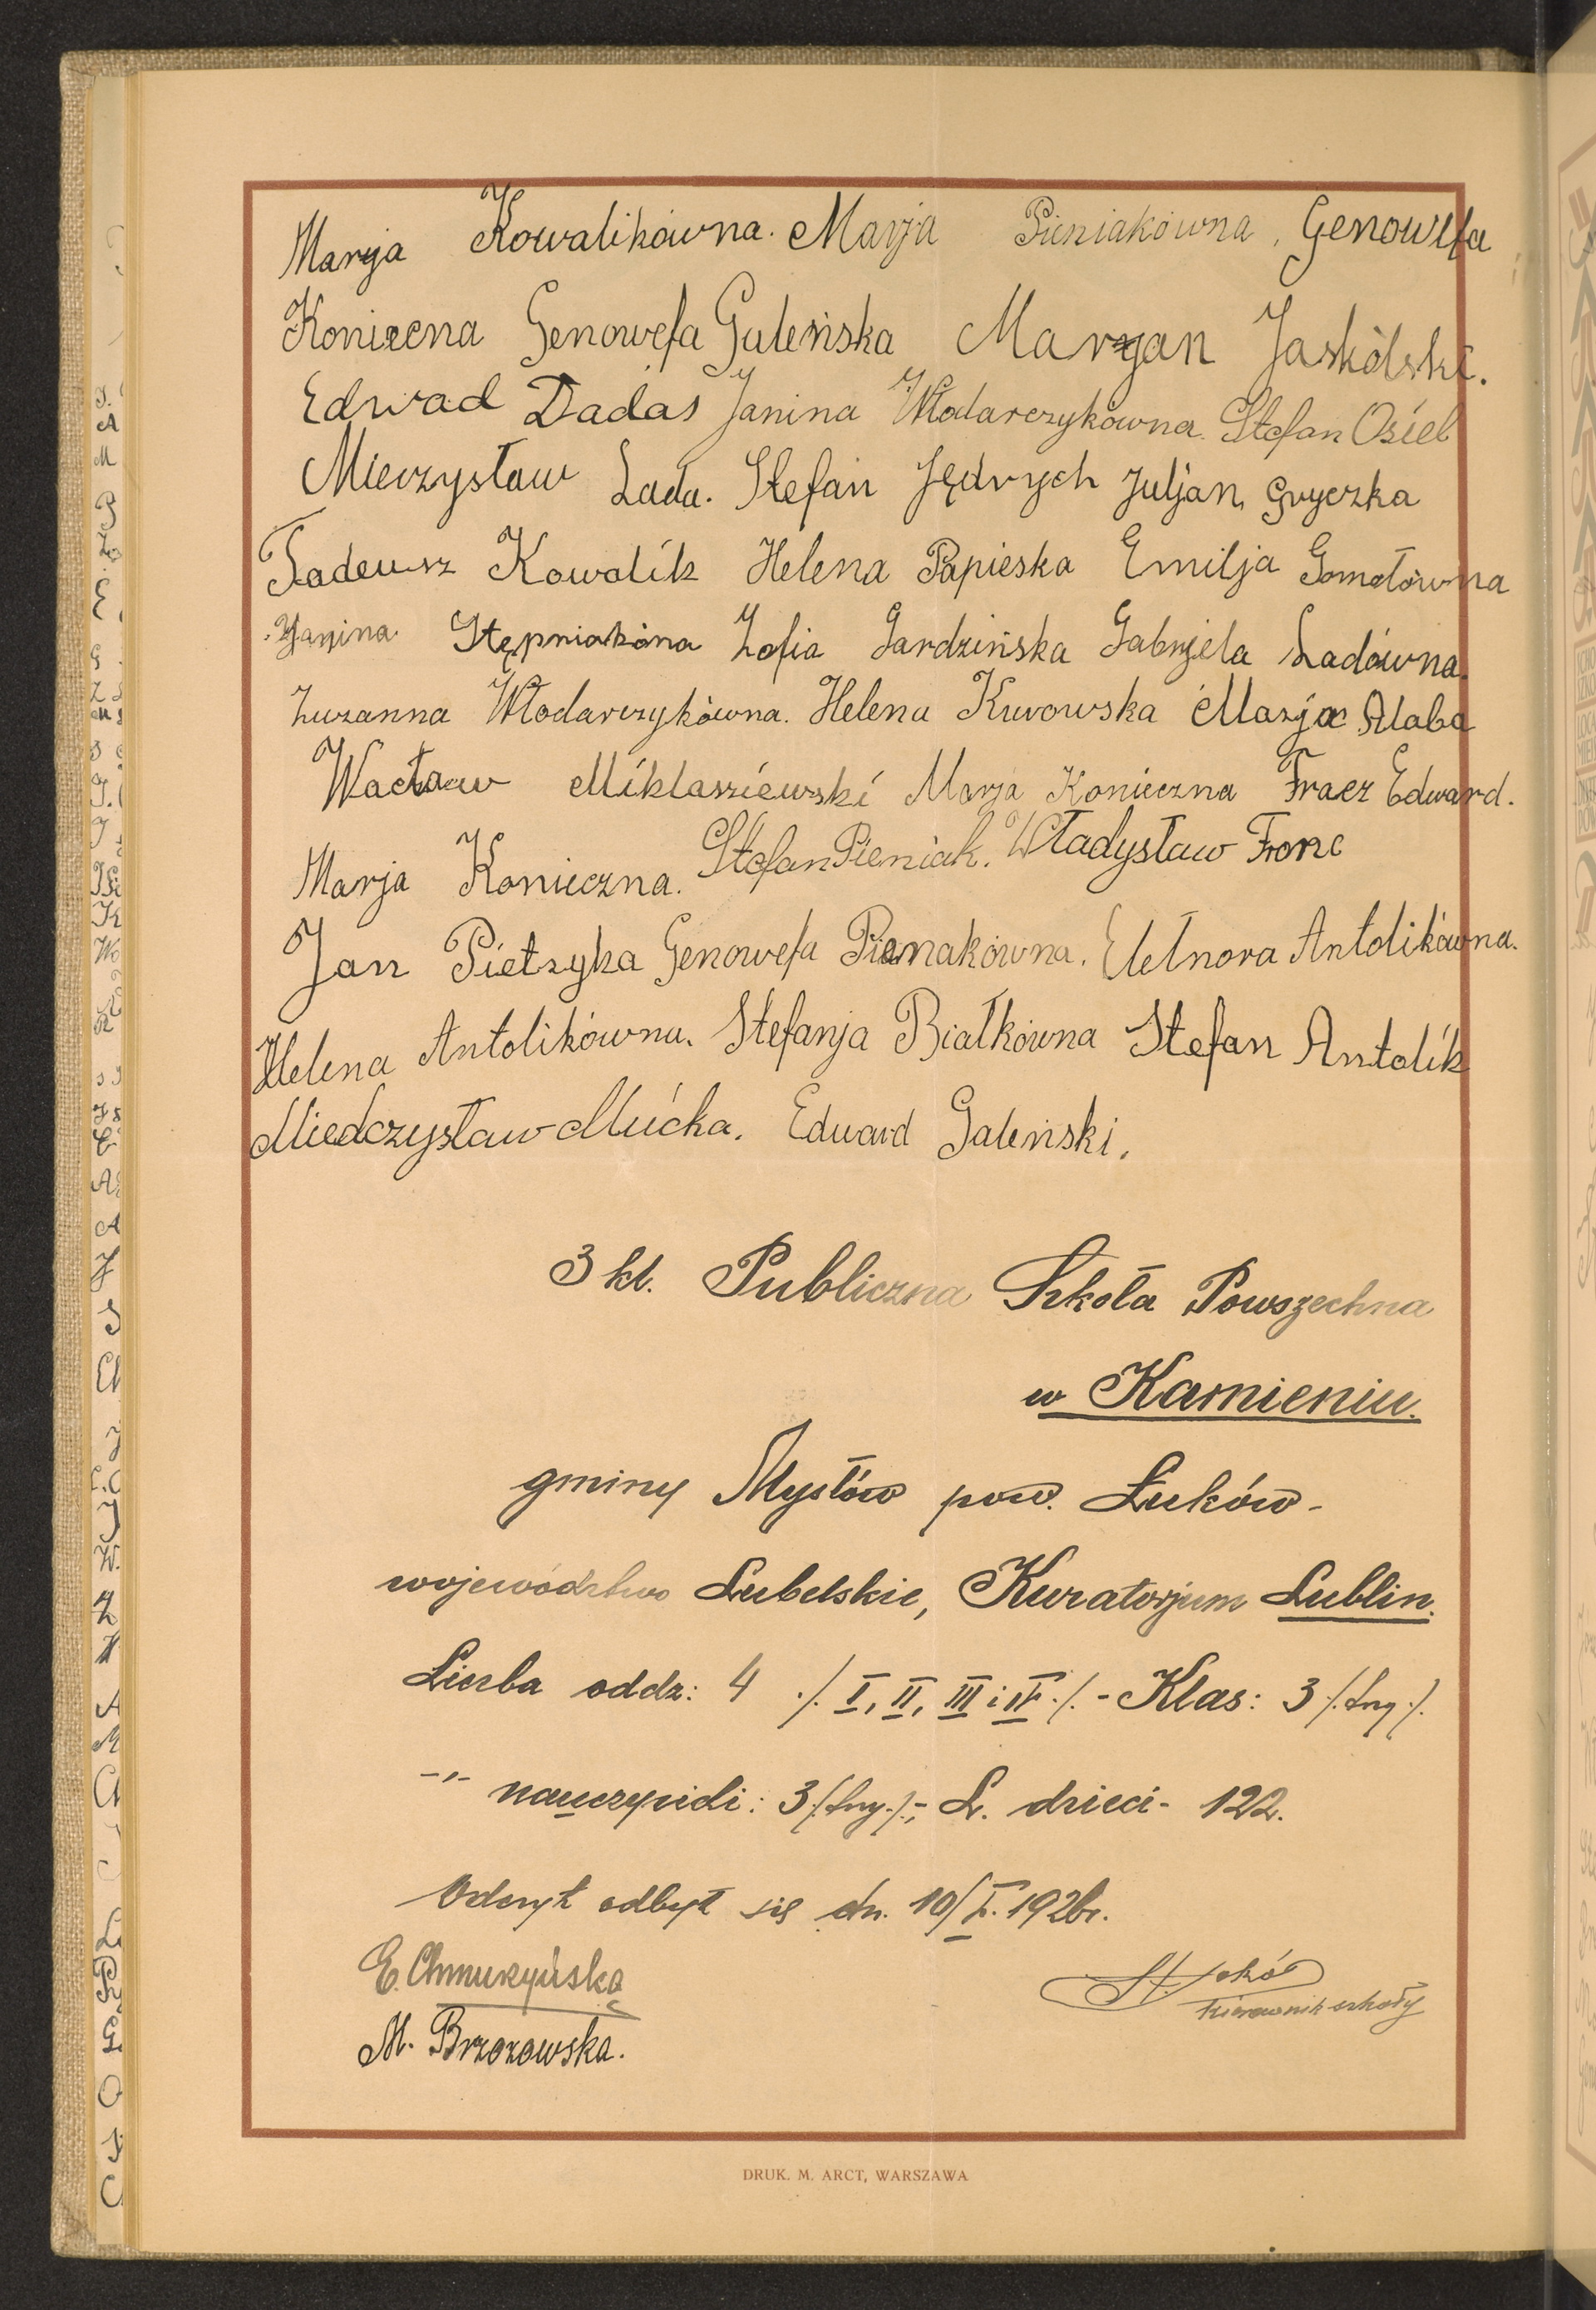 Marja Kowalikówna. Marja Pieniakówna, Genowefa
Koniecna Genowefa Guleńska Maryan Jaskólski.
Edwad Dadas Janina Włodarczykówna. Stefan Osieł
Mieczysław Lada. Stefan Jędrych Juljan Gryczka
Tadeusz Kowalik Helena Papieska Emilja Gomołówna
Janina Stępniakóna Zofia Gardzińska Gabrjela Ladówna.
Zuzanna Włodarczykówna. Helena Kurowska Marja Małaba
Wacław Miklasziewski Marja Konieczna Fracz Edward.
Marja Konieczna. Stefan Pieniak. Władysław Fronc
Jan Pietzyka Genowefa Pienakówna. Eletnora Antolikówna.
Helena Antolikówna. Stefanja Białkówna Stefan Antolik
Miedczysław Mućka. Edward Galeński.
3 kl. Publiczna Szkoła Powszechna
w Kamieniu.
gminy Mysłów pow. Łuków-
województwo Lubelskie, Kuratorjum Lublin.
Liczba oddz: 4 ./. I, II, III i IV ./. - Klas: 3 /. trzy ./.
-"- nauczycieli: 3 /. trzy ./.; L. dzieci - 122.
Odczyt odbył się dn. 10/V. 1926r.
E. Chmurzyńska
St. Sokół
kierownik szkoły
M. Brzozowska.
DRUK. M. ARCT, WARSZAWA